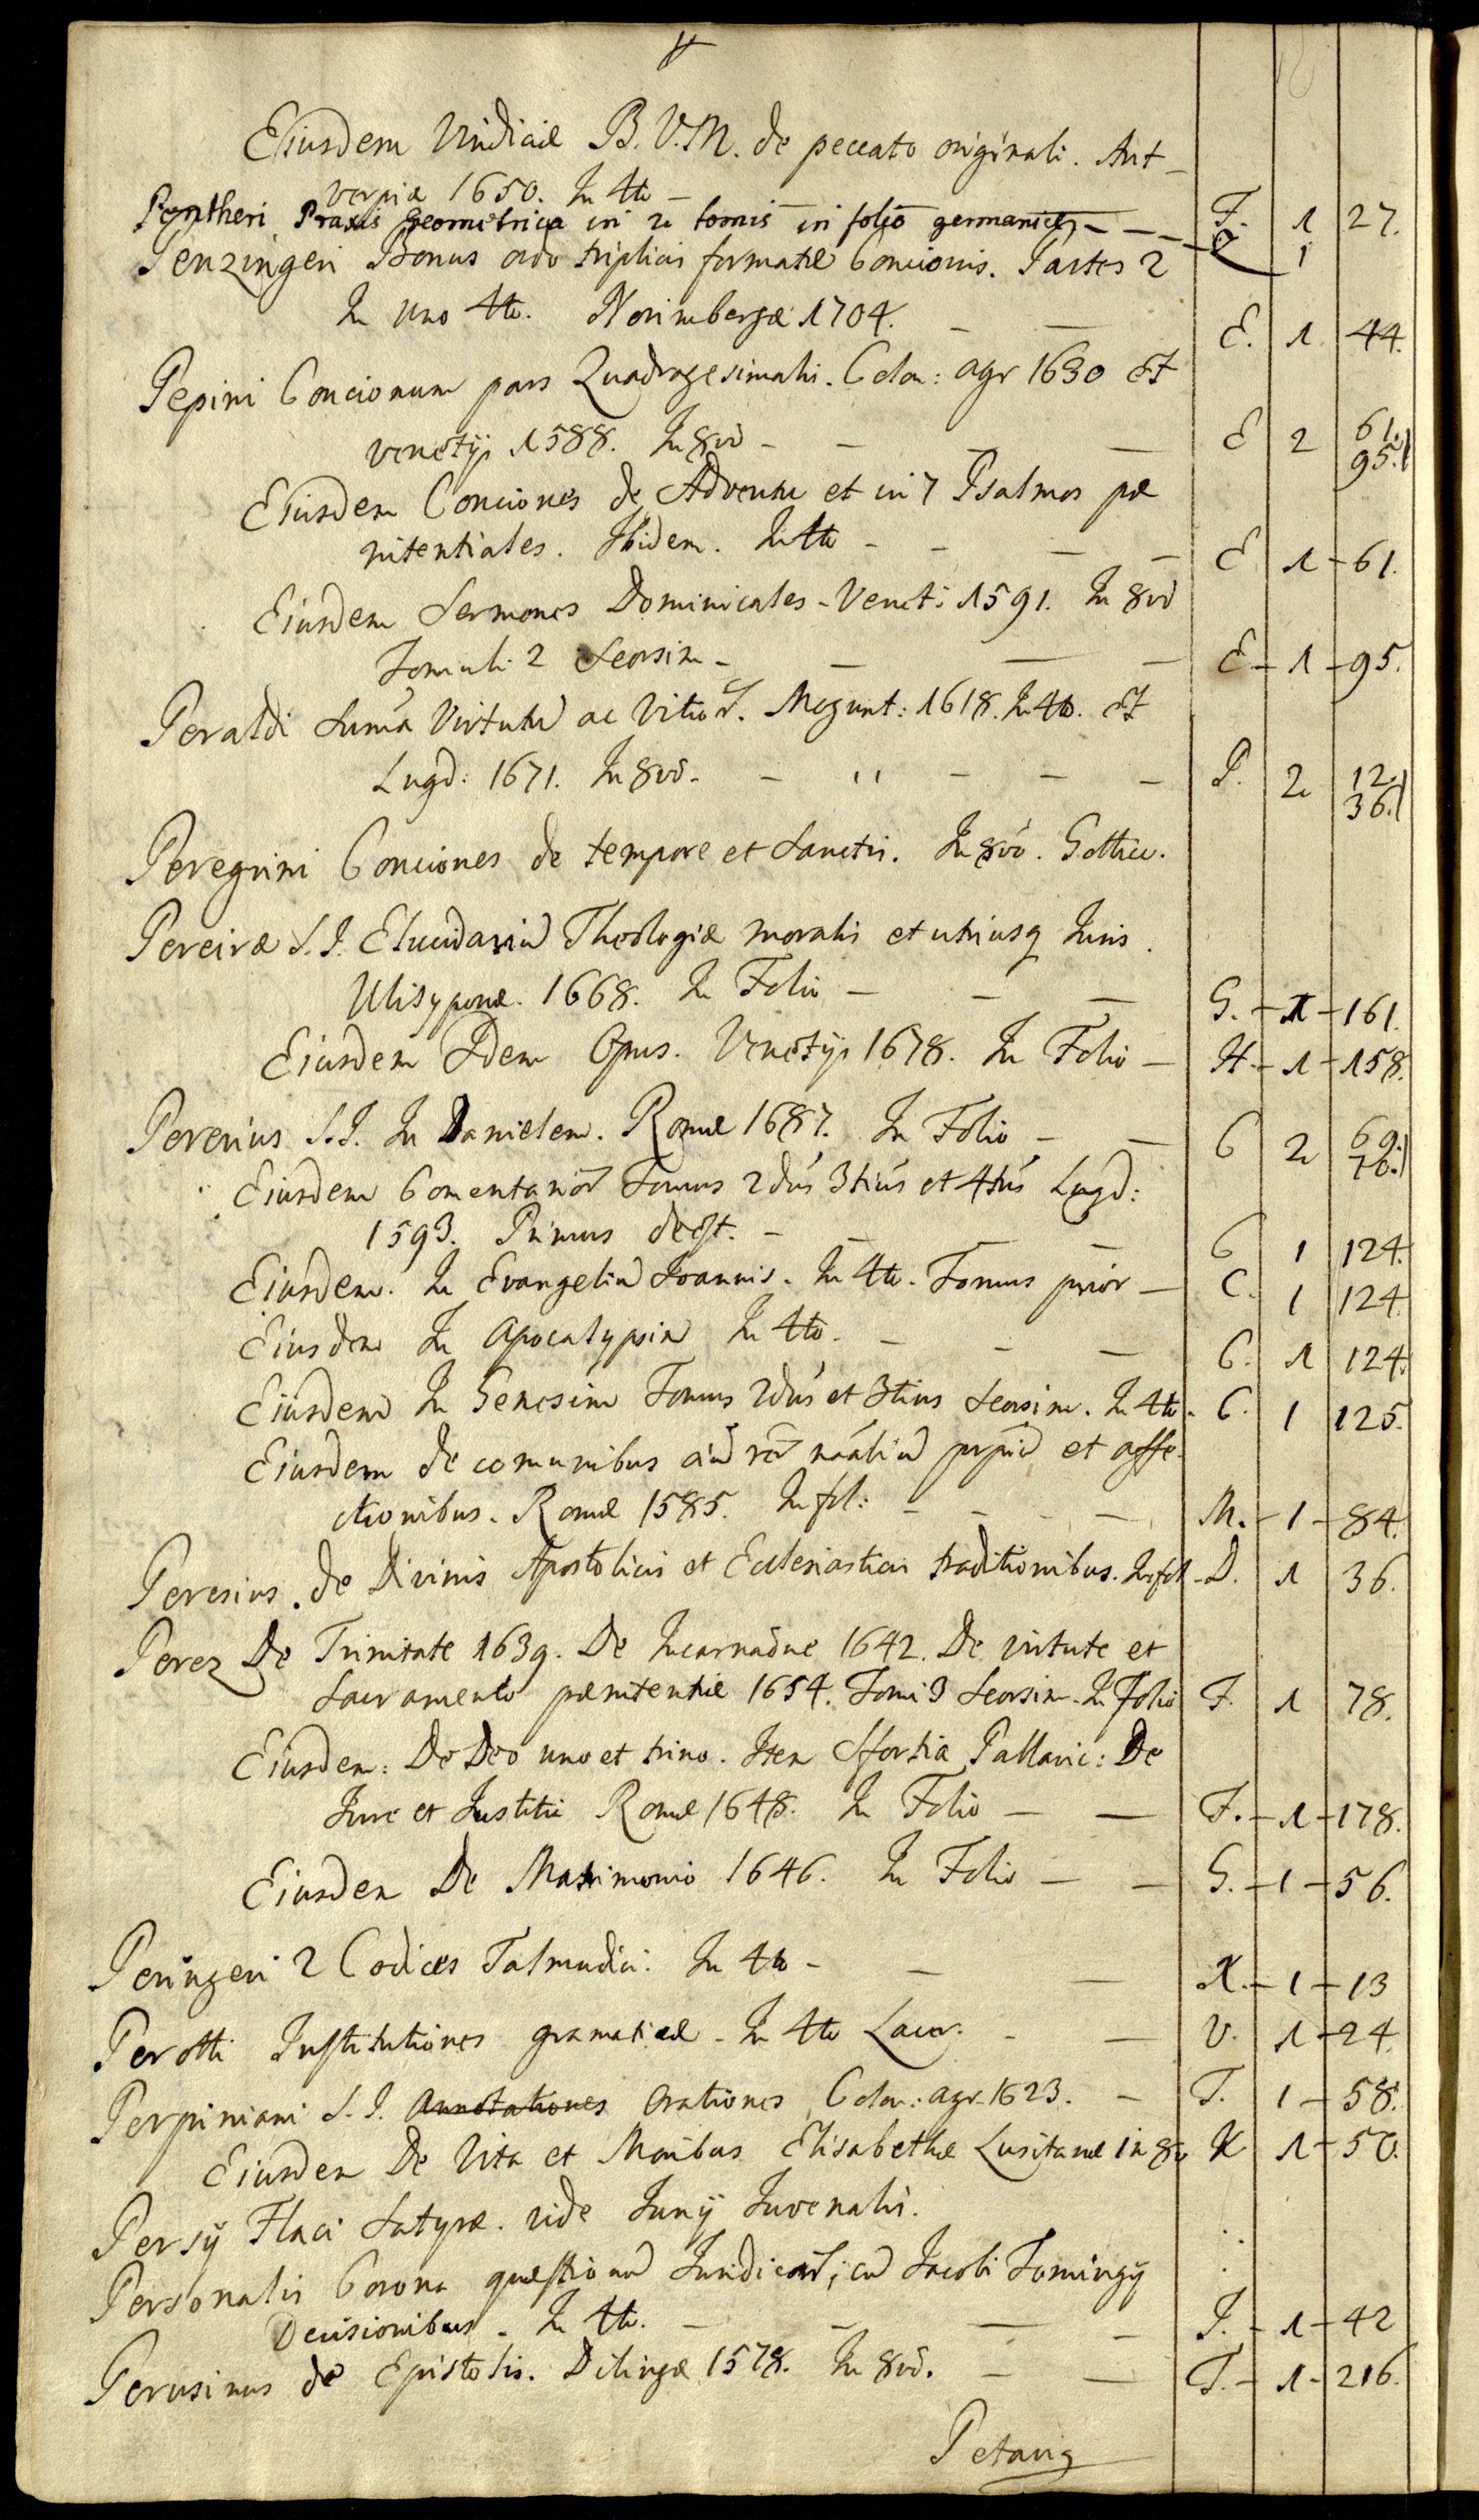 Eiusdem Vindiciæ B.V.M. de peccato originali. Ant-
verpiæ 1650. In 4to - F. 1 27.
Pentheri Praxis Geometrica in 2 tomis in folio germanice - - - Q 1
Penzingeri Bonus ordo triplicis formatæ Concionis. Partes 2
In uno 4to. Norimbergæ 1704. - - E. 1 44.
Pepini Concionum pars Quadragesimalis. Colon: agr 1630 Et
venetijs 1588. In 8vo - - - - E 2 61. 95.
Eiusdem Conciones de Adventu et in 7 Psalmos pæ
nitentiales. Ibidem. In 4to - - - - E 1 - 61.
Eiusdem Sermones Dominicales - Venet: 1591. In 8vo
Tomuli 2 Seorsim - - - - E - 1 - 95.
Peraldi Suma Virtutu ac Vitior. Mogunt: 1618. In 4to. Et
Lugd: 1671. In 8vo. - - '' - - - P. 2 12. 36.
Peregrini Conciones de tempore et Sanctis. In 8vo. Gothice.
Pereiræ S.J. Elucidariu Theologiæ moralis et utriusq Juris.
Ulisypone. 1668. In Folio - - - G. - 1 - 161.
Eiusdem Idem Opus. Venetijs 1678. In Folio - H. - 1 - 158.
Pererius S.J. In Danielem. Romæ 1687. In Folio - - C 2 69. 70.
Eiusdem Comentarior Tomus 2dus 3tius et 4tus Lugd:
1593. Primus deest. - - - - C 1 124.
Eiusdem. In Evangeliu Joannis. In 4to. Tomus prior - C. 1 124.
Eiusdem In Apocalypsin In 4to. - - - C. 1 124.
Eiusdem In Genesim Tomus 2dus et 3tius Seorsim. In 4to. C. 1 125.
Eiusdem de comunibus oiu rer naaliu et affe-
ctionibus. Romæ 1585. In fol: - - - - M. - 1 - 84.
Peresius. de Divinis Apostolicis et Ecclesiasticis traditionibus. In fol - D. 1 36.
Perez De Trinitate 1639. De Incarnaone 1642. De virtute et
Sacramento pænitentiæ 1654. Tomi 3 Seorsim. In Folio F. 1 78.
Eiusdem: De Deo uno et trino. Item Sfortia Pallavic: De
Jure et Justitia Romæ 1648. In Folio - - F. - 1 - 178.
Eiusdem De Matrimonio 1646. In Folio - - G. - 1 - 56.
Peringeri 2 Codices Talmudici. In 4to - - - X. - 1 - 13
Perotti Institutiones gramaticæ - In 4to Lacer. - - V. 1 - 24.
Perpiniani S.J. Annotationes Orationes Colon: agr. 1623. - T. 1 - 58.
Eiusdem De Vita et Moribus Elisabethæ Lusitanæ in 8vo K 1 - 50.
Persij Flaci Satyræ. vide Junij Juvenalis.
Personalis Corona quæstionu Juridicar, cu Jacobi Tomingij
Decisionibus. In 4to. - - - - J. - 1 - 42
Perusinus de Epistolis. Dilingæ 1578. In 8vo. - - T. - 1 - 216.
Petavij